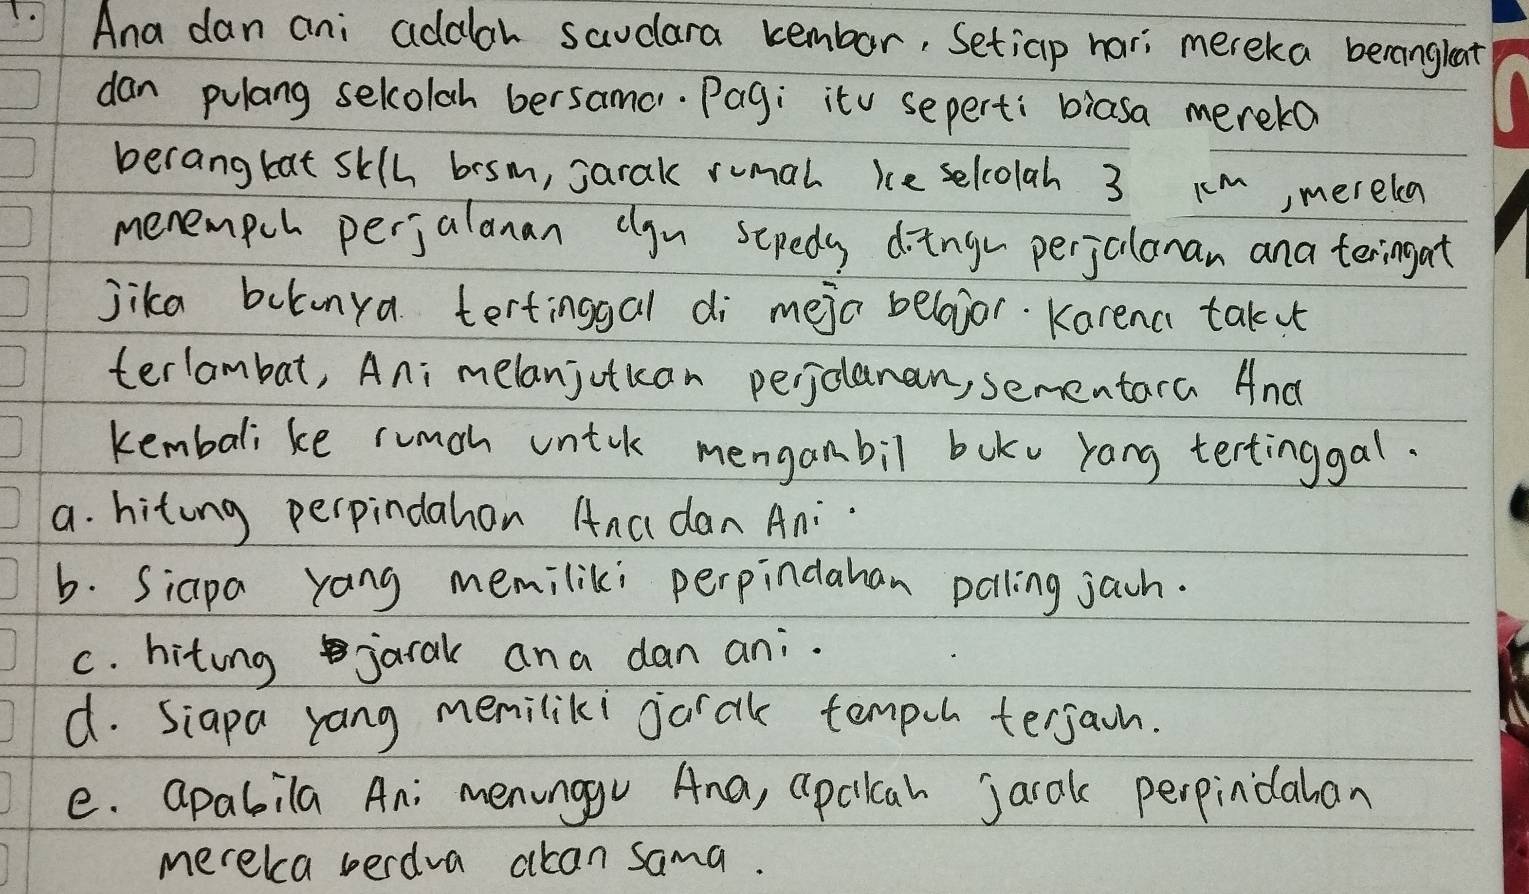 1. Ana dan ani adalah saudara kembar, Setiap hari mereka berangkat
dan pulang sekolah bersama. Pagi itu seperti biasa mereka
berangkat sklh brsm, jarak rumah ke sekolah 3 km, mereka
menempuh perjalanan dgn sepeda ditngu perjalanan ana teringat
jika bukunya tertinggal di meja belajar. Karena takut
terlambat, Ani melanjutkan perjalanan, sementara Ana
kembali ke rumah untuk mengambil buku yang tertinggal.
a. hitung perpindahan Ana dan Ani.
b. Siapa yang memiliki perpindahan paling jauh.
c. hitung jarak ana dan ani.
d. Siapa yang memiliki jarak tempuh terjauh.
e. apabila Ani menunggu Ana, apakah jarak perpindahan
mereka berdua akan sama.